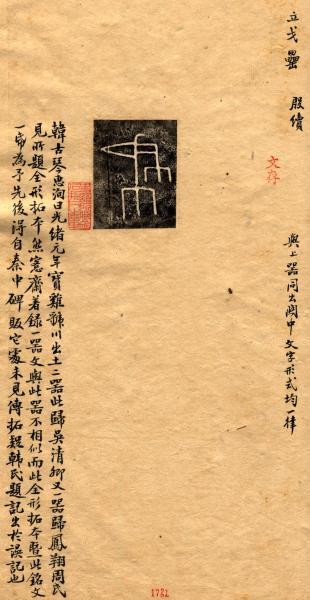 立戈罍　殷續
文存
與上器同出關中文字形式均一律
韓古琴惠洵曰光緒元年寶雞虢川出土二器此歸吳清卿又一器歸鳳翔周氏
見所題全形拓本然愙齋著錄一器文與此器不相似而此全形拓本暨此銘文
一帋為予先後得自秦中碑販它處未見傳拓疑韓氏題記出於誤記也